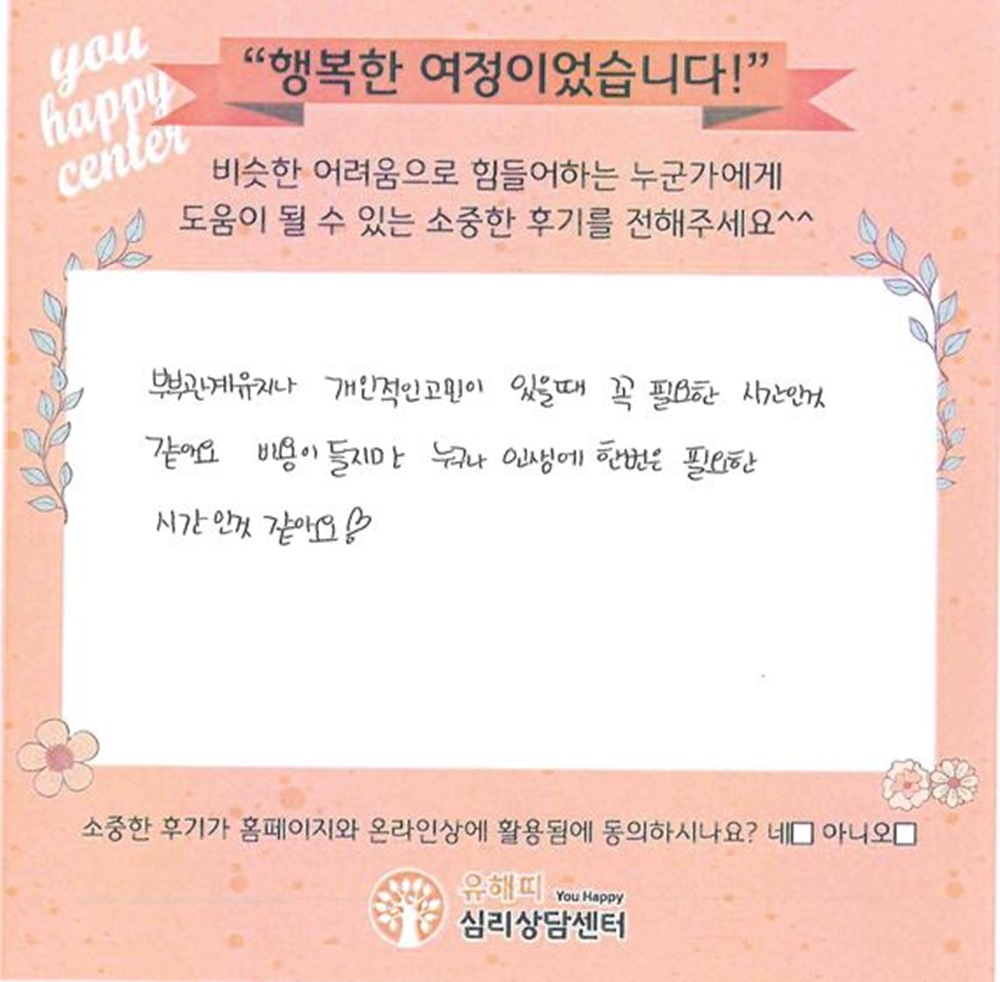 you
happy
center
“행복한 여정이었습니다!”
비슷한 어려움으로 힘들어하는 누군가에게
도움이 될 수 있는 소중한 후기를 전해주세요^^
부부관계유지나 개인적인고민이 있을때 꼭 필요한 시간인것
같아요 비용이 들지만 누구나 인생에 한번은 필요한
시간 인것 같아요♡
소중한 후기가 홈페이지와 온라인상에 활용됨에 동의하시나요? 네□ 아니오□
유해피 You Happy
심리상담센터